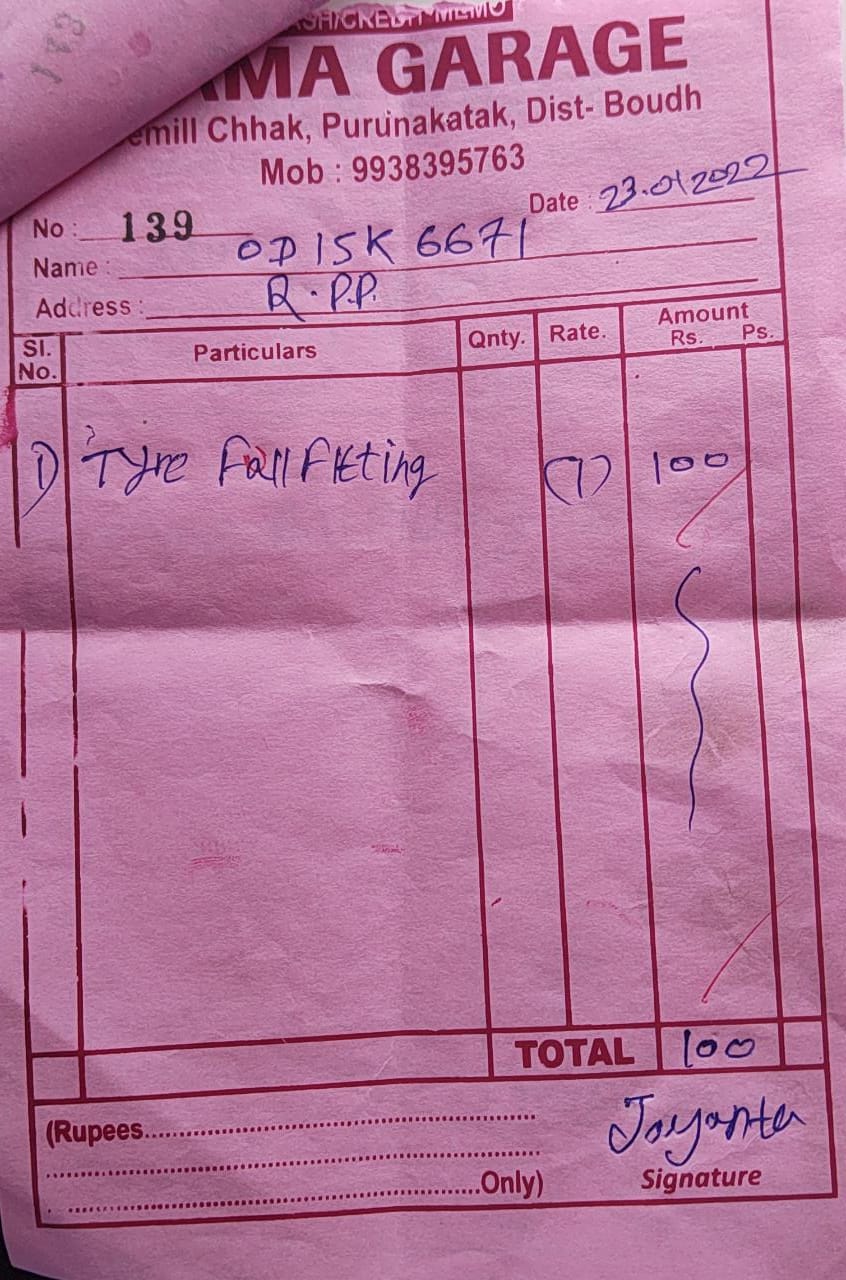 CASH/CREDIT MEMO
MA GARAGE
emill Chhak, Purunakatak, Dist- Boudh
Mob : 9938395763
No : 139 Date : 23.01.2022
Name : OD15K 6671
Address : R.P.P.
Sl. No. Particulars Qnty. Rate. Amount Rs. Ps.
1) Tyre Fall Fitting (1) 100
TOTAL 100
(Rupees
Only)
Jayanta
Signature